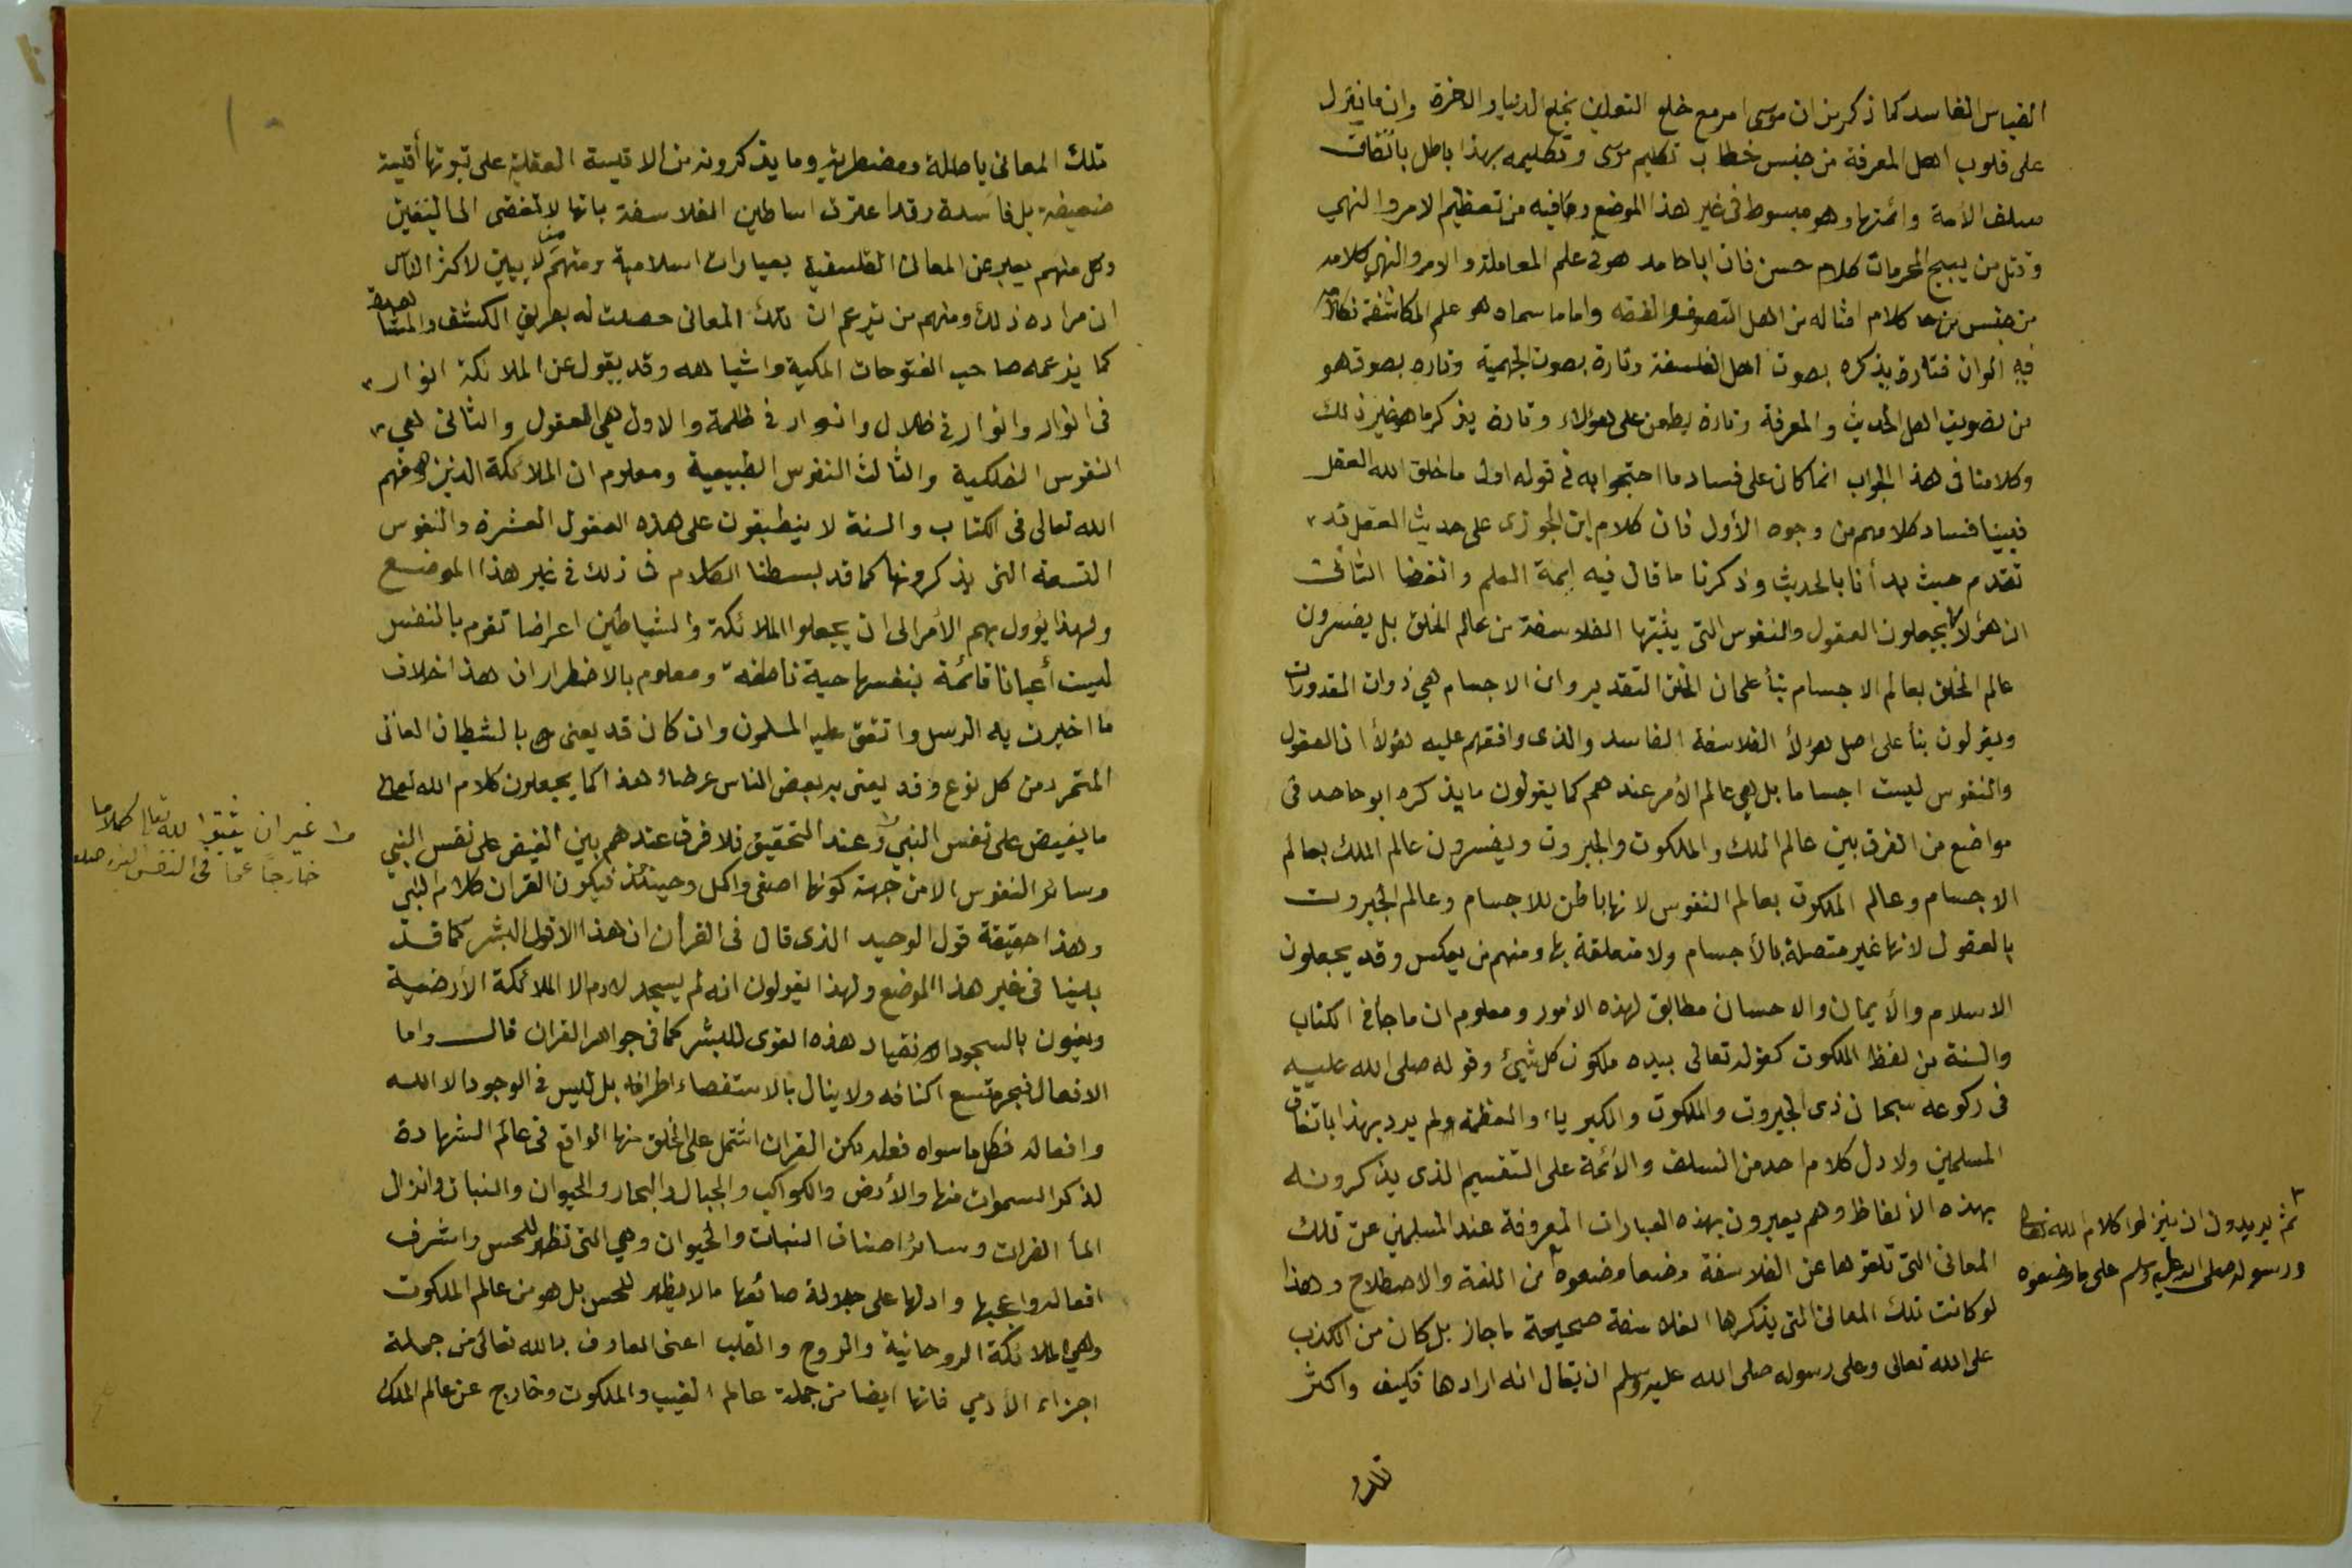 القياس الفاسد كما ذكر من ان موسى امر مع خلع النعلين بخلع الدنيا والاخرة وان ما ينزل
على قلوب اهل المعرفة من جنس خطاب تكليم موسى وتكليمه بهذا باطل باتفاق
سلف الأمة وائمتها وهو مبسوط فى غير هذا الموضع وما فيه من تعظيم الامر والنهي
وقتل من يبيح المحرمات كلام حسن فان ابا حامد هو في علم المعاملة والامر والنهي كلامه
من جنس كلام امثاله من اهل التصوف والفقه واما ما سماه هو علم المكاشفة فكلامه
فيه الوان فتارة يذكره بصوت اهل الفلسفة وتارة بصوت الجهمية وتاره بصوت هو
من تصويت اهل الحديث والمعرفة وتارة يطعن على هؤلاء وتارة يذكر ما هو غير ذلك
وكلامنا فى هذا الجواب انما كان على فساد ما احتجوا به في قوله اول ما خلق الله العقل
فبينا فساد كلامهم من وجوه الأول فان كلام ابن الجوزى على حديث العقل قد
تقدم حيث بدأنا بالحديث وذكرنا ما قال فيه ايمة العلم وايضا الثانى
ان هؤلاء يجعلون العقول والنفوس التى يثبتها الفلاسفة من عالم الخلق بل يفسرون
عالم الخلق بعالم الاجسام بنأ على ان الخلق التقدير وان الاجسام هي ذوات المقدورات
ويقولون بنأ على اصل هؤلأ الفلاسفة الفاسد والذى وافقهم عليه هؤلأ ان العقول
والنفوس ليست اجساما بل هي عالم الأمر عندهم كما يقولون ما يذكره ابو حامد فى
مواضع من الفرق بين عالم الملك والملكوت والجبروت ويفسرون عالم الملك بعالم
الاجسام وعالم الملكوت بعالم النفوس لانها باطن للاجسام وعالم الجبروت
بالعقول لانها غير متصلة بالأجسام ولا متعلقة بها ومنهم من يعكس وقد يجعلون
الاسلام والأيمان والاحسان مطابق لهذه الامور ومعلوم ان ما جأ في الكتاب
والسنة من لفظ الملكوت كقوله تعالى بيده ملكوت كل شيئ وقوله صلى الله عليه
فى ركوعه سبحان ذى الجبروت والملكوت والكبرياء والعظمة ولم يرد بهذا باتفاق
المسلمين ولا دل كلام احد من السلف والأئمة على التقسيم الذى يذكرونه
بهذه الألفاظ وهم يعبرون بهذه العبارات المعروفة عند المسلمين عن تلك
المعانى التى تلقوها عن الفلاسفة وضعا وضعوه من اللغة والاصطلاح وهذا
لو كانت تلك المعانى التى يذكرها الفلاسفة صحيحة ما جاز بل كان من الكذب
على الله تعالى وعلى رسوله صلى الله عليه وسلم ان يقال انه ارادها فكيف واكثر
ثم يريدون ان ينزلوا كلام الله تعالى
ورسوله صلى الله عليه وسلم على ما وضعوه
تلك
تلك المعانى باطلة ومضطربة وما يذكرونه من الاقيسة العقلية على ثبوتها أقيسة
ضعيفة بل فاسدة وقد اعترف اساطين الفلاسفة بانها لا تفضى الى اليقين
وكل منهم يعبر عن المعانى الفلسفية بعبارات اسلامية ومنهم من لا يبين لاكثر الناس
ان مراده ذلك ومنهم من يزعم ان تلك المعانى حصلت له بطريق الكشف والمشاهدة
كما يزعمه صاحب الفتوحات المكية واشباهه وقد يقول عن الملائكة انوار
فى انوار وانوار في ظلال وانوار في ظلمة والاول هي العقول والثانى هي
النفوس الفلكية والثالث النفوس الطبيعية ومعلوم ان الملائكة الذين وصفهم
الله تعالى فى الكتاب والسنة لا ينطبقون على هذه العقول العشرة والنفوس
التسعة التى يذكرونها كما قد بسطنا الكلام فى ذلك في غير هذا الموضع
ولهذا يؤول بهم الأمر الى ان يجعلوا الملائكة والشياطين اعراضا تقوم بالنفس
ليست أعيانا قائمة بنفسها حية ناطقة ومعلوم بالاضطرار ان هذا خلاف
ما اخبرت به الرسل واتفق عليه المسلمون وان كان قد يعنى بالشيطان العاتى
المتمرد من كل نوع وقد يعنى به بعض الناس عرضا وهذا كما يجعلون كلام الله تعالى
ما يفيض على نفس النبي وعند التحقيق فلا فرق عندهم بين الفيض على نفس النبي
وسائر النفوس الا من جهة كونها اصفى واكمل وحينئذ فيكون القران كلام النبي
وهذا حقيقة قول الوحيد الذى قال فى القرأن ان هذا الا قول البشر كما قد
بينا فى غير هذا الموضع ولهذا يقولون انه لم يسجد لادم الا الملائكة الأرضية
ويعنون بالسجود الانقياد هذه القوى للبشر كما فى جواهر القران قال واما
الافعال فبحر متسع اكنافه ولا ينال بالاستقصاء اطرافه بل ليس في الوجود الا الله
وافعاله فكل ما سواه فعله لكن القران اشتمل على الخلق منها الواقع فى عالم الشهادة
لذكر السموات منها والأرض والكواكب والجبال والبحار والحيوان والنبات وانزال
المأ الفرات وسائر اصناف النبات والحيوان وهي التى تظهر للحس واشرف
افعاله واعجبها وادلها على جلالة صانعها ما لا يظهر للحس بل هو من عالم الملكوت
وهي الملائكة الروحانية والروح والقلب اعنى العارف بالله تعالى من جملة
اجزاء الأدمي فانها ايضا من جملة عالم الغيب والملكوت وخارج عن عالم الملك
من غير ان يثبتوا لله تعالى كلاما
خارجا عما فى النفس